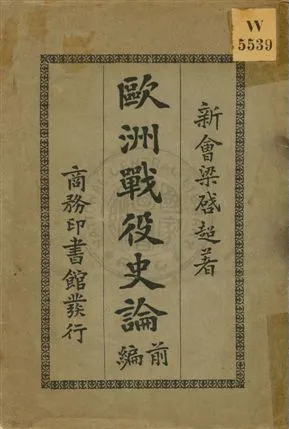 W
5539
新會梁啓超著
歐洲戰役史論
前編
商務印書館發行